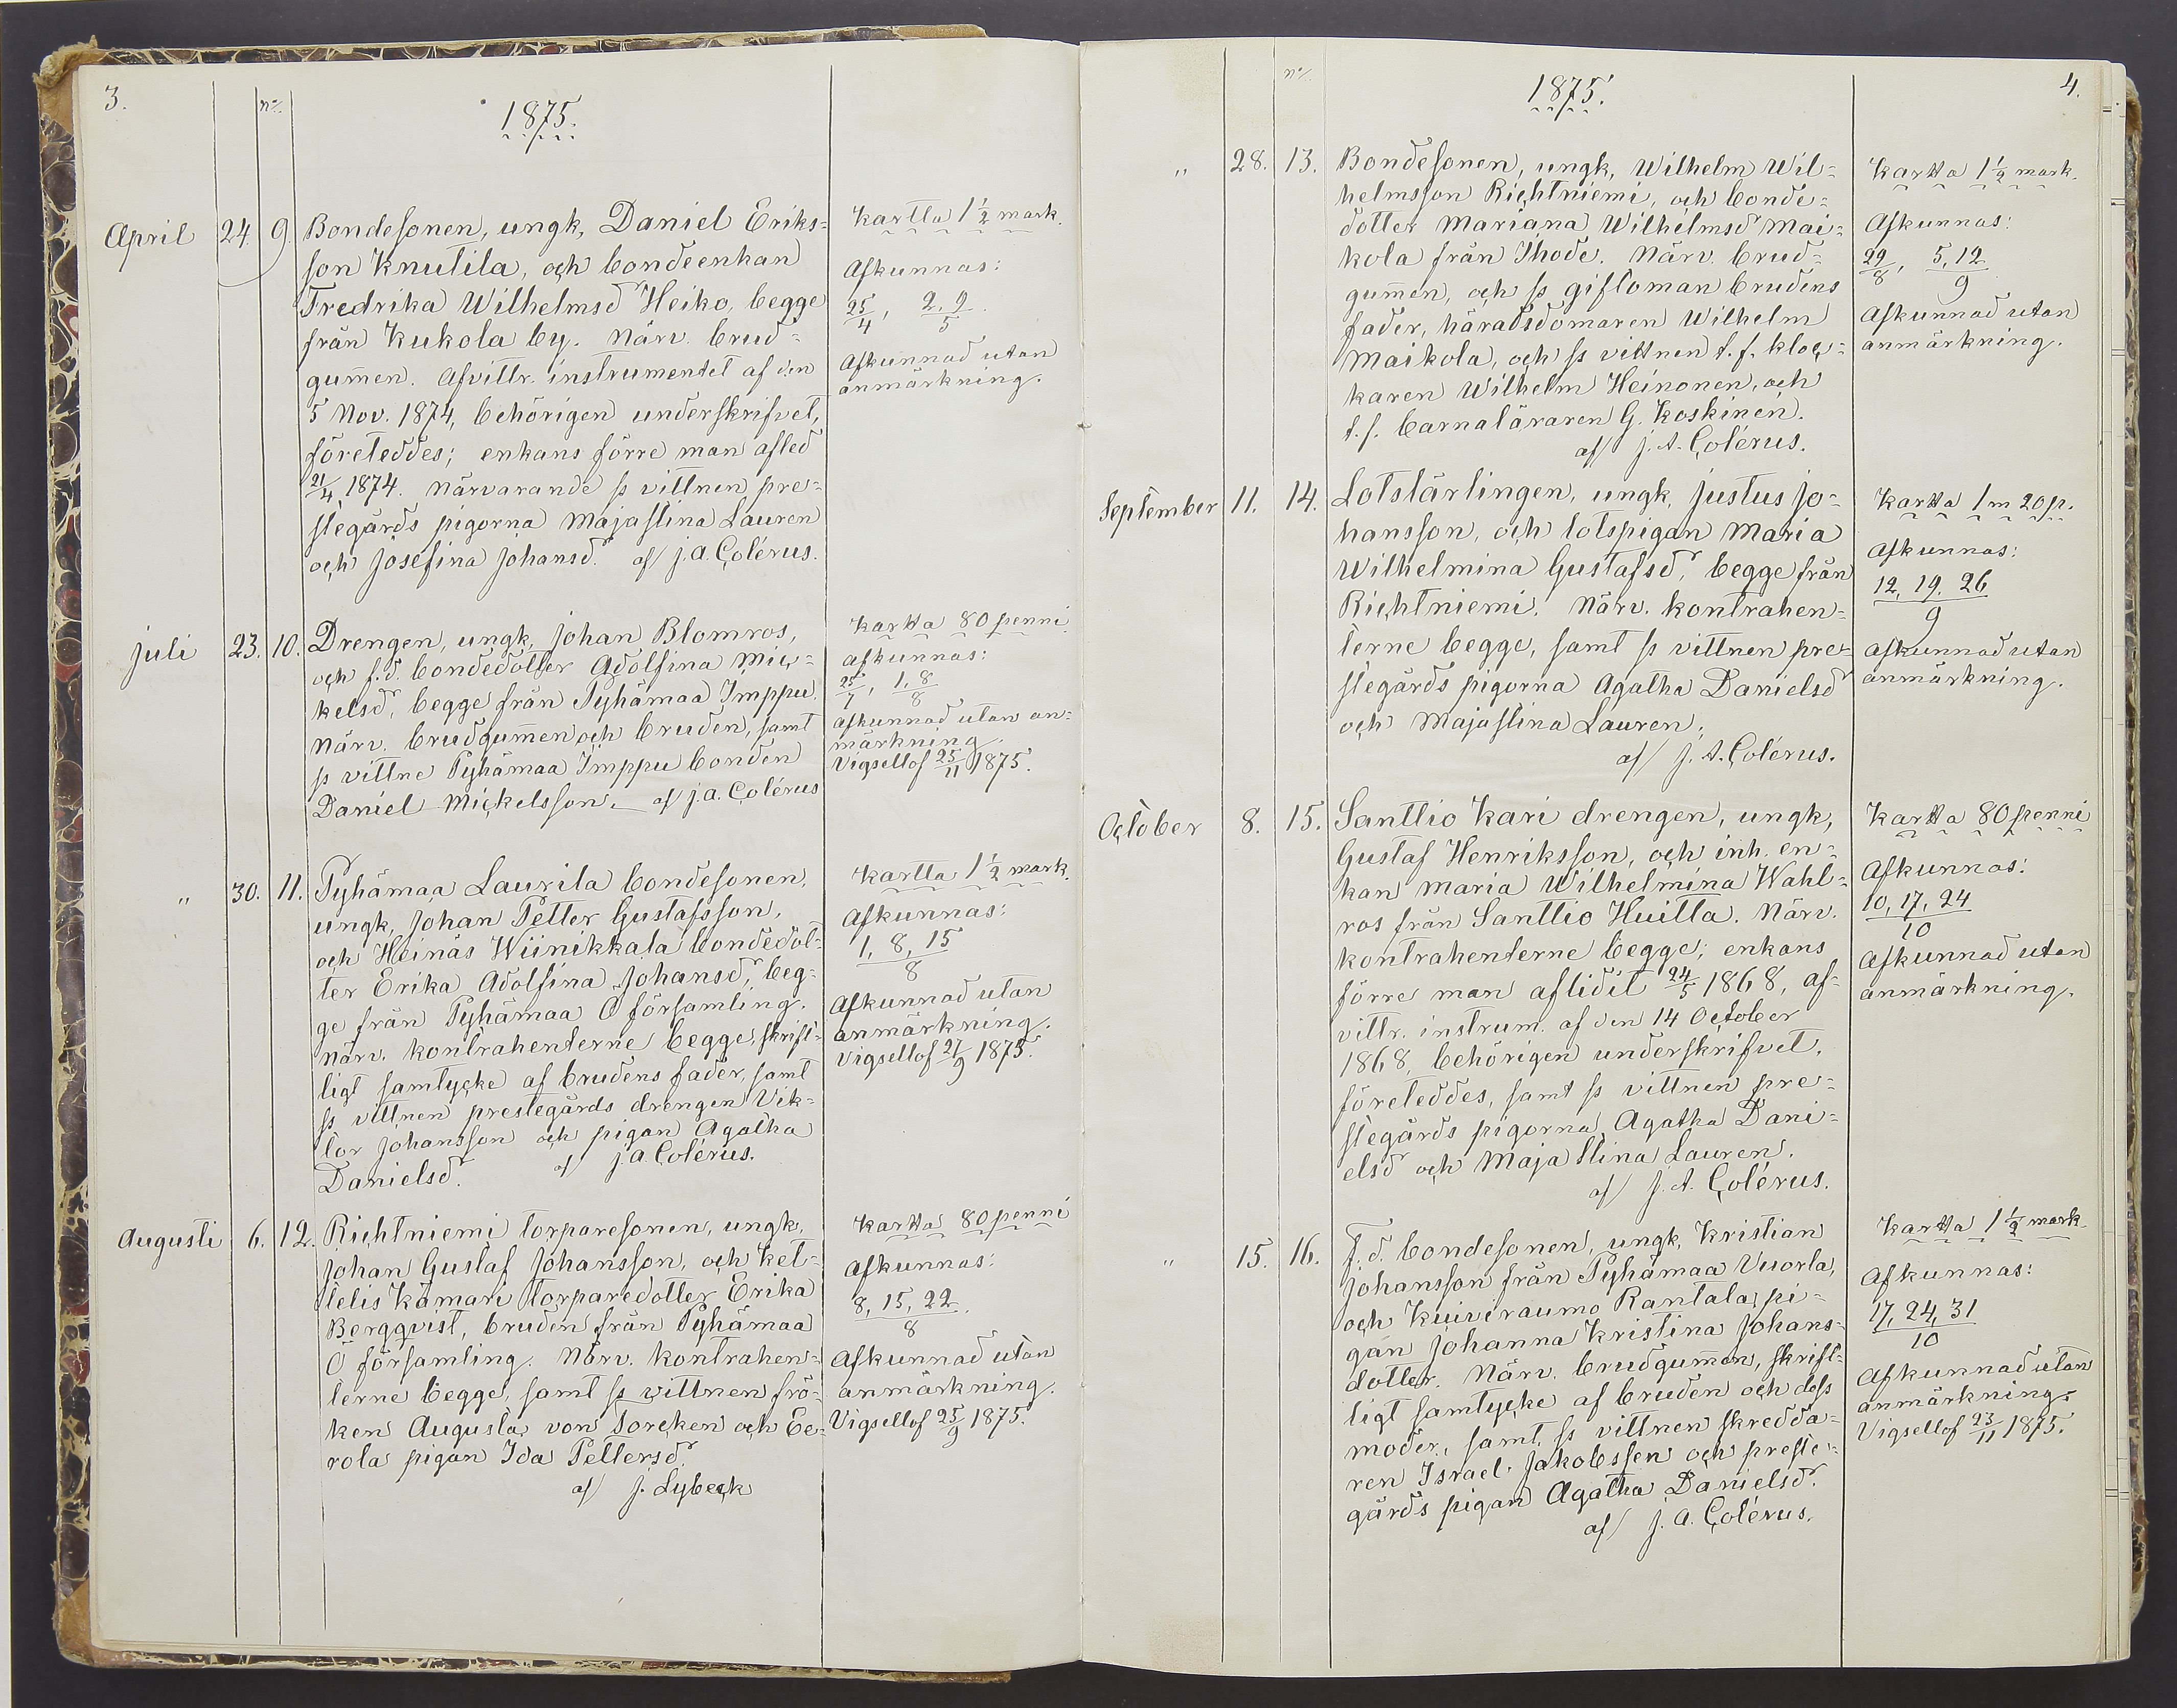 3.
No/.
1875.
April 24. 9. Bondesonen, ungk, Daniel Eriks=
son Knutila, och bondeenkan
Fredrika Wilhelmsdr Heiko, begge
från Kukola by. Närv. brud=
gum̄en. Afvittr. instrumentet af den
5 Nov. 1874, behörigen underskrifvet,
företeddes; enkans förre man afled
21/4 1874. Närvarande ss vittnen pre=
stegårds pigorna Majastina Lauren
och Josefina Johansdr. af/ J. A. Colérus.
Kartta 1 1/2 mark.
Afkunnas:
25/4, 2. 9/5.
Afkunnad utan
anmärkning.
Juli 23. 10. Drengen, ungk, Johan Blomros,
och f. d. bondedotter Adolfina Mic=
kelsdr, begge från Pyhämaa Imppu.
Närv. brudgum̄en och bruden, samt
ss vittne Pyhämaa Imppu bonden
Daniel Mickelsson. af J. A. Colérus
Kartta 80 penni.
Afkunnas:
25/7, 1, 8/8
Afkunnad utan an=
märkning.
Vigsellof 25/11 1875.
" 30. 11. Pyhämaa Laurila bondesonen,
ungk, Johan Petter Gustafsson,
och Heinäs Wiinikkala bondedot=
ter Erika Adolfina Johansdr, beg=
ge från Pyhämaa Ö församling.
Närv. kontrahenterne begge, skrift=
ligt samtycke af brudens fader, samt
ss vittnen prestegårds drengen Vik=
tor Johansson och pigan Agatha
Danielsdr. af J. A. Colérus.
Kartta 1 1/2 mark.
Afkunnas:
1, 8, 15/8
Afkunnad utan
anmärkning.
Vigsellof 21/9 1875.
Augusti 6. 12. Richtniemi torparesonen, ungk,
Johan Gustaf Johansson, och Ket=
telis Kämäri torparedotter Erika
Bergqvist, bruden från Pyhämaa
Ö församling. Närv. kontrahen=
terne begge, samt ss vittnen frö=
ken Augusta von Torcken och Ee=
rola pigan Ida Pettersdr.
af/ J. Lybeck
Kartta 80 penni
Afkunnas:
8, 15, 22/8.
Afkunnad utan
anmärkning.
Vigsellof 25/9 1875.
4.
No/.
1875.
" 28. 13. Bondesonen, ungk, Wilhelm Wil=
helmsson Richtniemi, och bonde=
dotter Mariana Wilhelmsdr Mai=
kola från Ihode. Närv. brud=
gum̄en, och ss giftoman brudens
fader, häradsdomaren Wilhelm
Maikola, och ss vittnen t. f. kloc=
karen Wilhelm Heinonen, och
t. f. barnaläraren G. Koskinen.
af/ J. A. Colérus.
Kartta 1 1/2 mark.
Afkunnas:
29/8, 5, 12/9
Afkunnad utan
anmärkning.
September 11. 14. Lotslärlingen, ungk, Justus Jo=
hansson, och lotspigan Maria
Wilhelmina Gustafsdr, begge från
Richtniemi. Närv. kontrahen=
terne begge, samt ss vittnen pre=
stegårds pigorna Agatha Danielsdr
och Majastina Lauren.
af/ J. A. Colérus.
Kartta 1 m 20 p.
Afkunnas:
12, 19. 26/9
Afkunnad utan
anmärkning.
October 8. 15. Santtio Kari drengen, ungk,
Gustaf Henriksson, och inh. en=
kan Maria Wilhelmina Wahl=
ros från Santtio Huitta. Närv.
kontrahenterne begge; enkans
förre man aflidit 24/5 1868, af=
vittr. instrum. af den 14 October
1868, behörigen underskrifvet,
företeddes, samt ss vittnen pre=
stegårds pigorna Agatha Dani=
elsdr och Maja Stina Lauren.
af/ J. A. Colérus.
Kartta 80 penni
Afkunnas:
10, 17, 24/10
Afkunnad utan
anmärkning.
" 15. 16. F. d. bondesonen, ungk, Kristian
Johansson från Pyhämaa Vuorla,
och Kuiviraumo Rantala pi=
gan Johanna Kristina Johans=
dotter. Närv. brudgum̄en, skrift=
ligt samtycke af bruden och dess
moder, samt ss vittnen skredda=
ren Israel Jakobsson och preste=
gårds pigan Agatha Danielsdr.
af/ J. A. Colérus.
Kartta 1 1/2 mark
Afkunnas:
17, 24, 31/10
Afkunnad utan
anmärkning.
Vigsellof 23/11 1875.